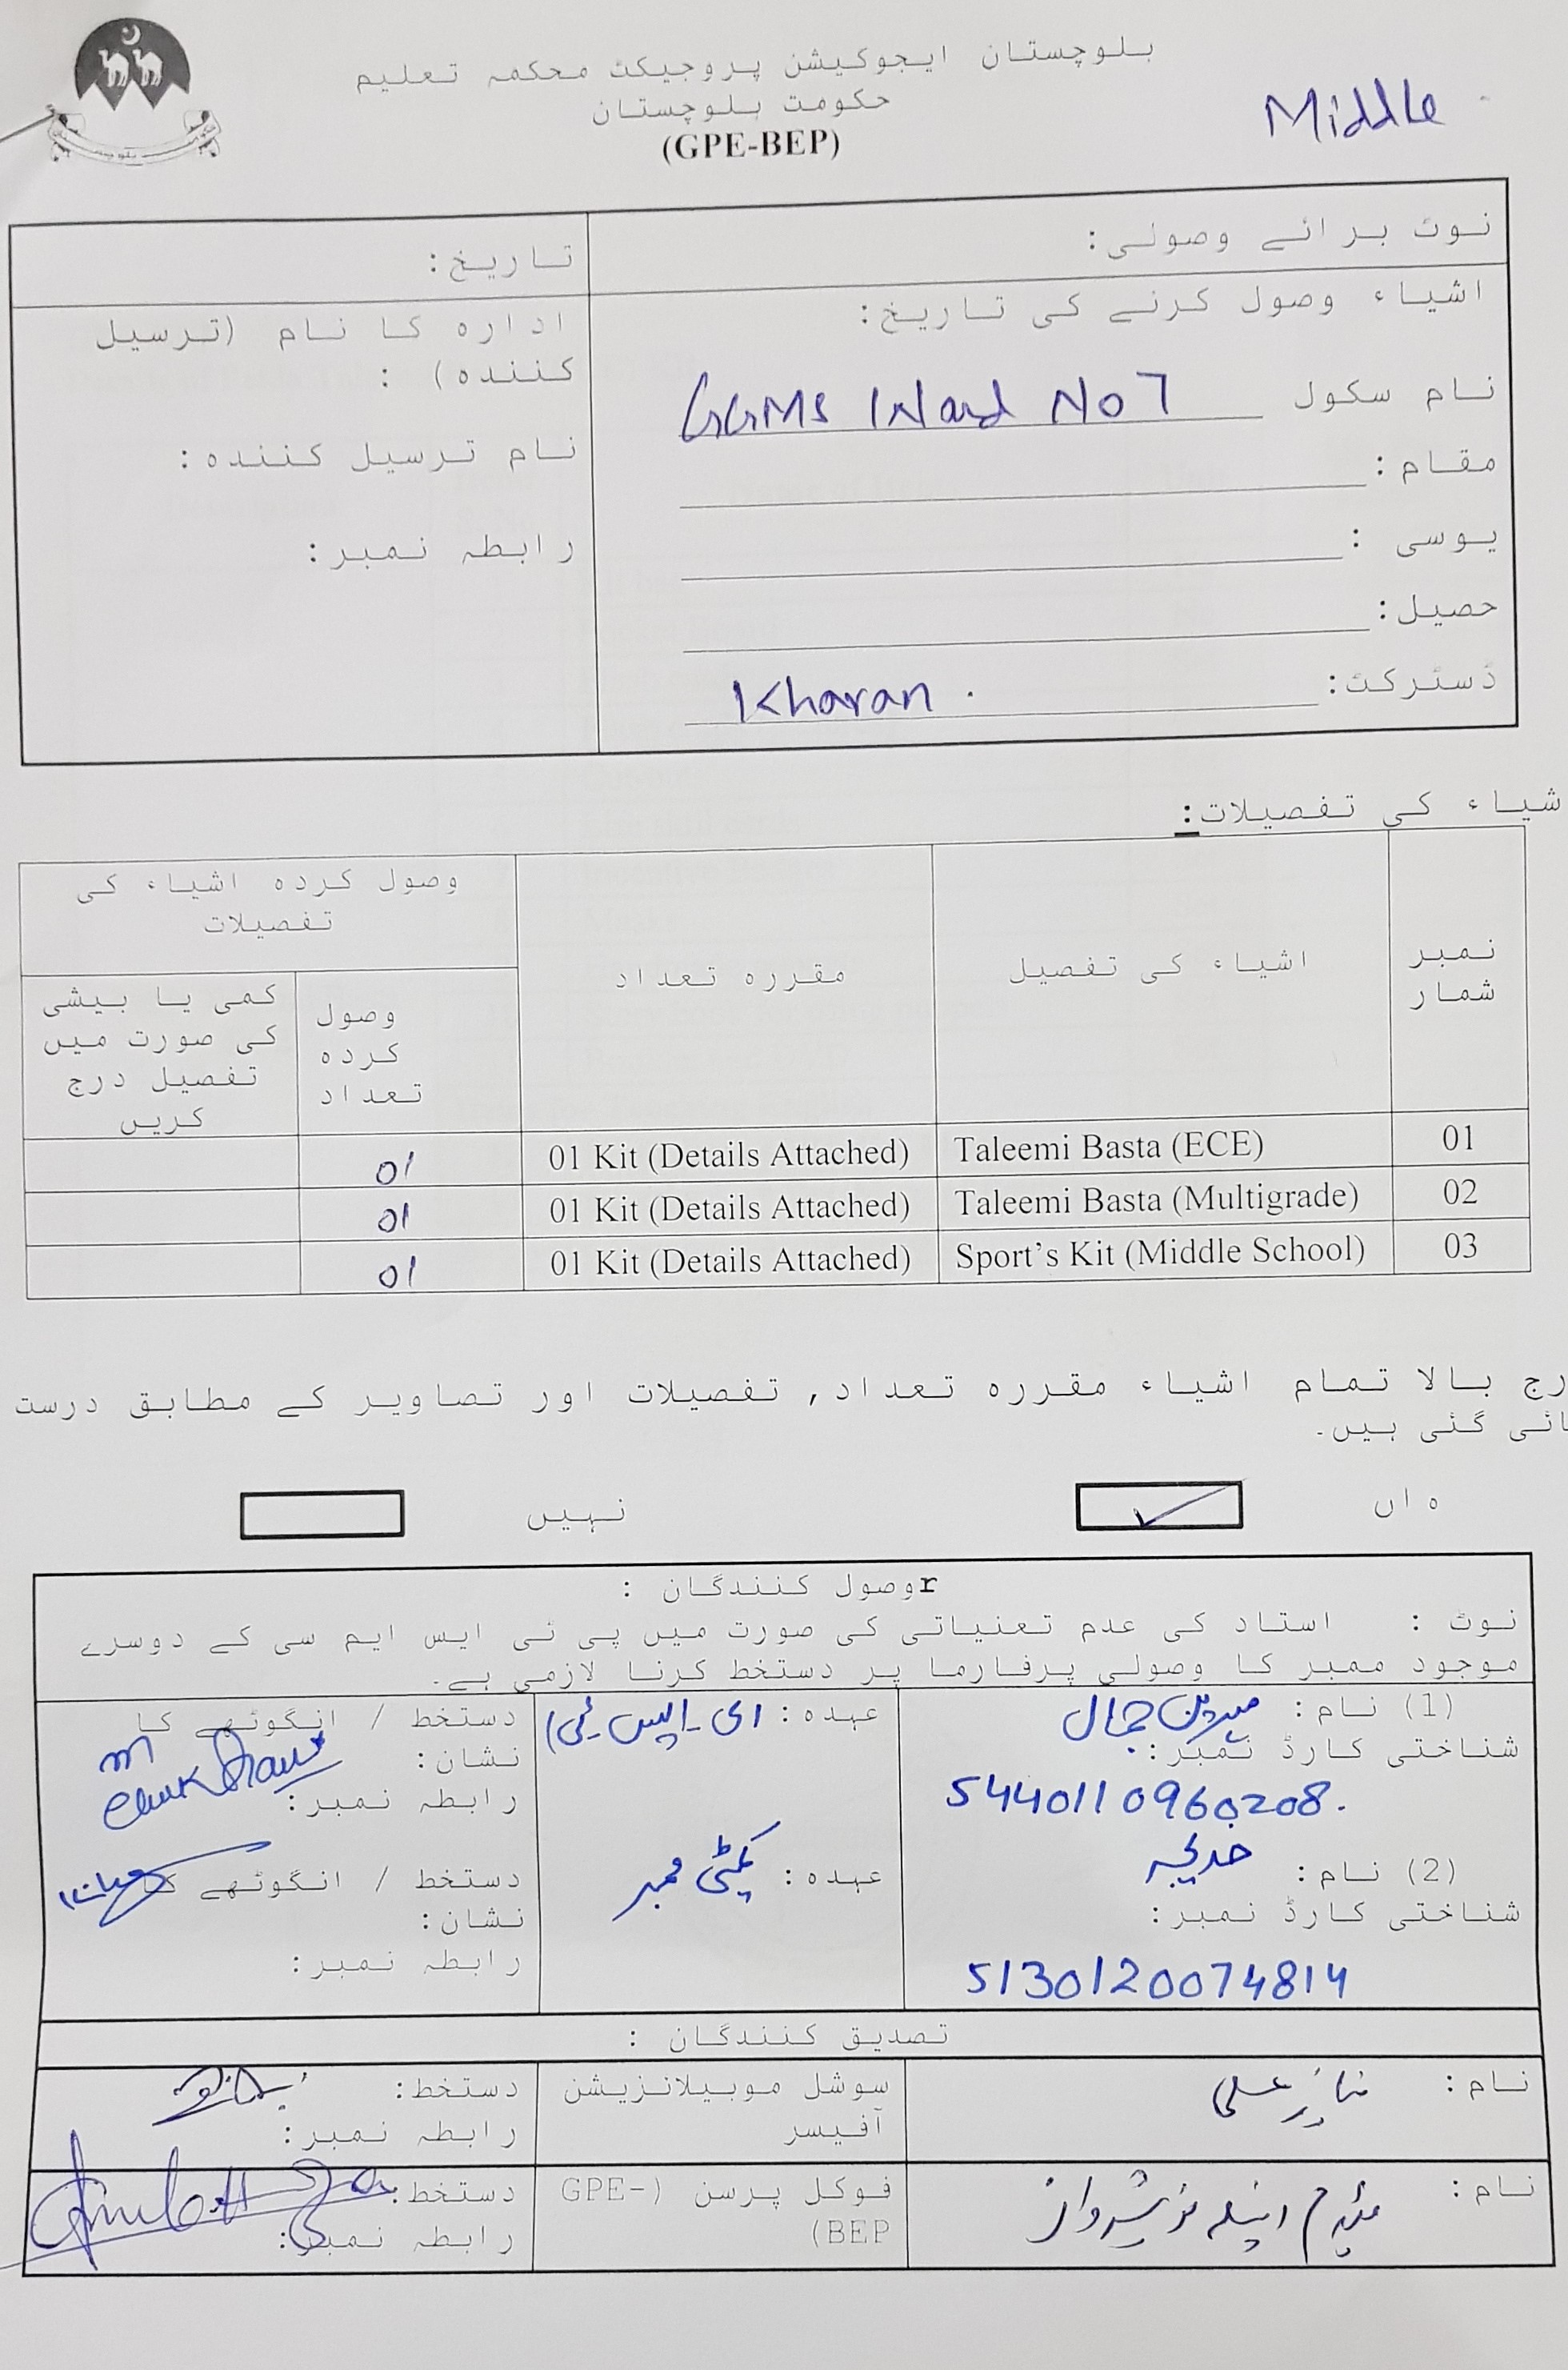 بلوچستان ایجوکیشن پروجیکٹ محکمہ تعلیم
حکومت بلوچستان
(GPE-BEP)
Middle
نوٹ برائے وصولی:
تاریخ:
اشیاء وصول کرنے کی تاریخ:
نام سکول GGMS Ward No 7
مقام:
یوسی :
حصیل:
ڈسٹرکٹ: Kharan .
ادارہ کا نام (ترسیل
کنندہ) :
نام ترسیل کنندہ:
رابطہ نمبر:
شیاء کی تفصیلات:
نمبر شمار
اشیاء کی تفصیل
مقررہ تعداد
وصول کردہ اشیاء کی تفصیلات
وصول کردہ تعداد
کمی یا بیشی کی صورت میں تفصیل درج کریں
01 Taleemi Basta (ECE) 01 Kit (Details Attached) 01
02 Taleemi Basta (Multigrade) 01 Kit (Details Attached) 01
03 Sport’s Kit (Middle School) 01 Kit (Details Attached) 01
رج بالا تمام اشیاء مقررہ تعداد, تفصیلات اور تصاویر کے مطابق درست
ائی گئی ہیں۔
ہاں
نہیں
rوصول کنندگان :
نوٹ : استاد کی عدم تعنیاتی کی صورت میں پی ٹی ایس ایم سی کے دوسرے
موجود ممبر کا وصولی پرفارما پر دستخط کرنا لازمی ہے۔
(1) نام: جمال
شناختی کارڈ نمبر:
5440110960208.
عہدہ: ای۔ایس۔ٹی)
دستخط / انگوٹھے کا
نشان:
رابطہ نمبر:
(2) نام: خدیجہ
شناختی کارڈ نمبر:
5130120074814
عہدہ: کمیٹی ممبر
دستخط / انگوٹھے کا
نشان:
رابطہ نمبر:
تصدیق کنندگان :
نام: علی
سوشل موبیلائزیشن
آفیسر
دستخط:
رابطہ نمبر:
نام: میڈم انیلہ نوشیروانی
فوکل پرسن (GPE-
BEP)
دستخط:
رابطہ نمبر: